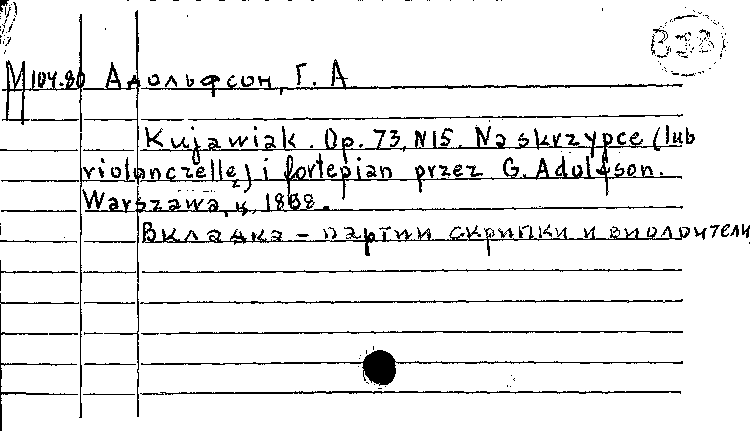 B38
M 104.80 Адольфсон, Г. А
Kujawiak. Op. 73, N15. Na skrzypce (lub
violonczellę) i fortepian przez G. Adolfson.
Warszawa, ц. 1868.
Вкладка – партии скрипки и виолончели